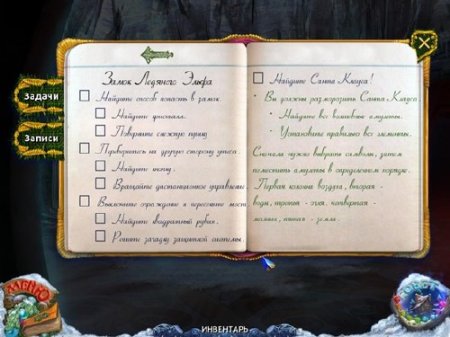 Задачи
Записи
Замок Ледяного Эльфа
Найдите способ попасть в замок.
Найдите
Поверните снежную
Переберитесь на другую сторону утеса.
Найдите
Вращайте дистанционное управление.
Выключите ограждение и пересеките мост.
Найдите квадратный рубин.
Решите загадку защитной системы.
Найдите Санта Клауса!
Вы должны разморозить Санта Клауса
Найдите все волшебные амулеты.
Установите правильно все элементы.
Сначала нужно выбрать символы, затем
поместить амулеты в определенном порядке.
Первая колонна воздуха, вторая -
воды, третья - огня, четвертая -
молнии, пятая - земли.
МЕНЮ
ИНВЕНТАРЬ